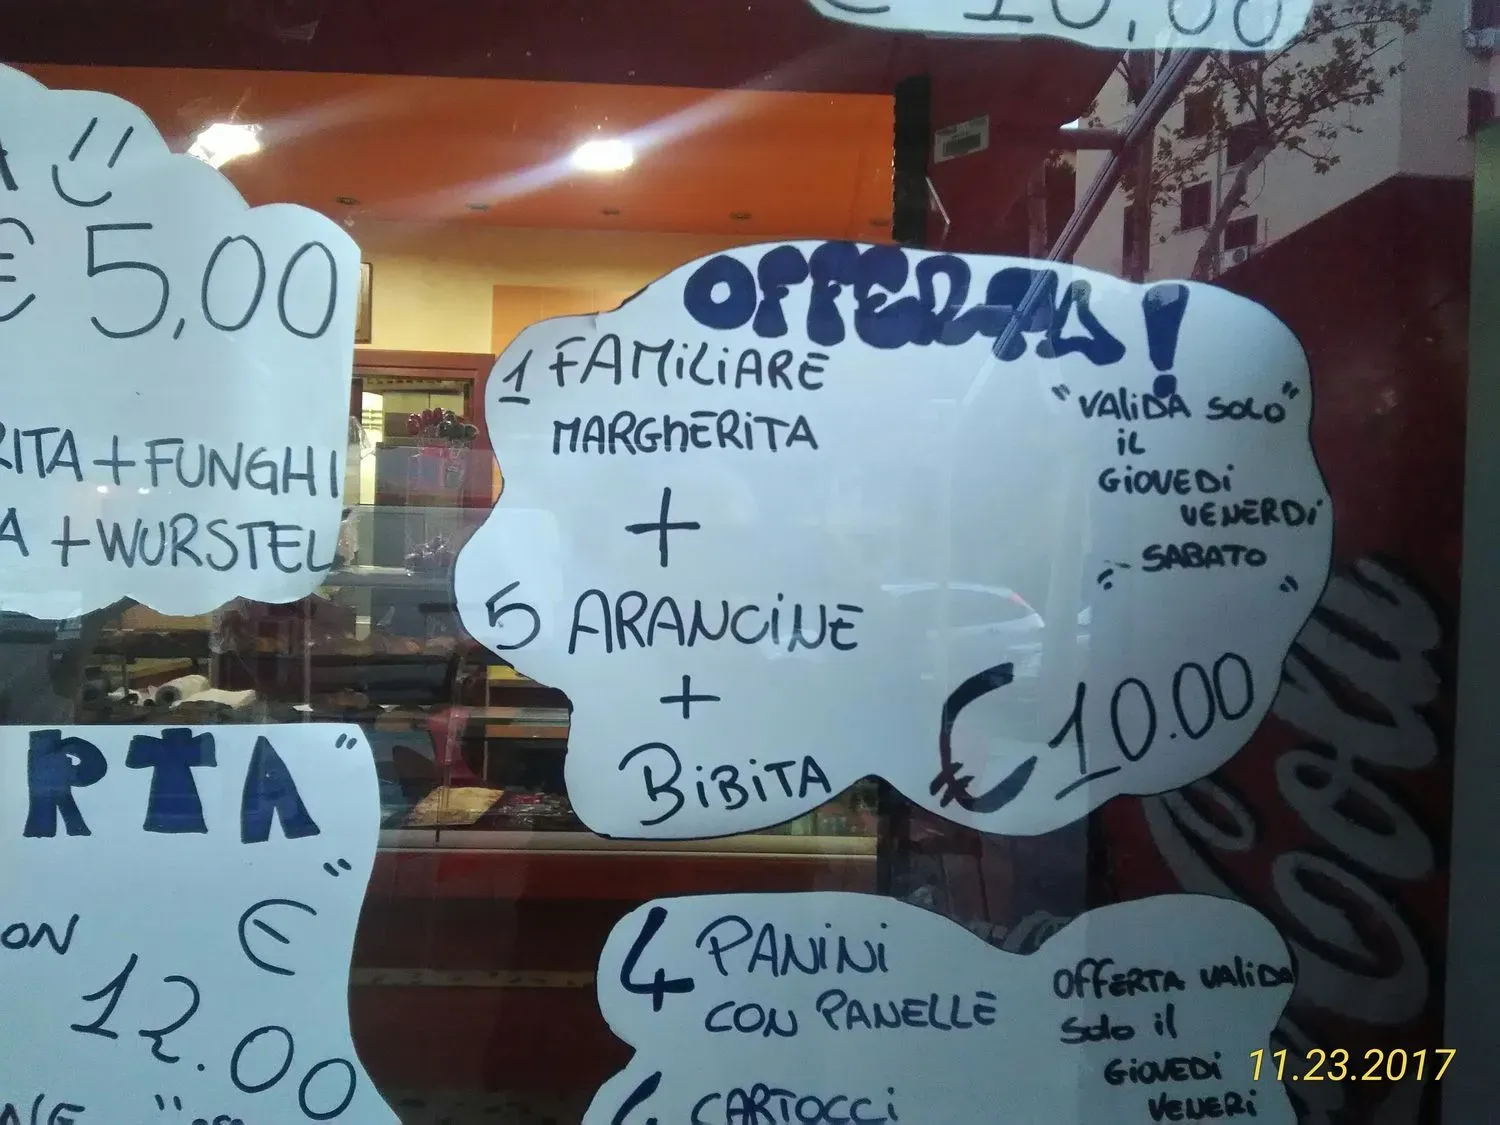 € 10,00
€ 5,00
RITA + FUNGHI
A + WURSTEL
OFFERTA!
1 FAMILIARE
MARGHERITA
+
5 ARANCINE
+
BIBITA
"VALIDA SOLO"
IL
GIOVEDI
VENERDI
SABATO
€ 10.00
RTA"
ON €
12.00
4 PANINI
CON PANELLE
CARTOCCI
OFFERTA VALIDA
SOLO IL
GIOVEDI
VENERI
Cola
11.23.2017